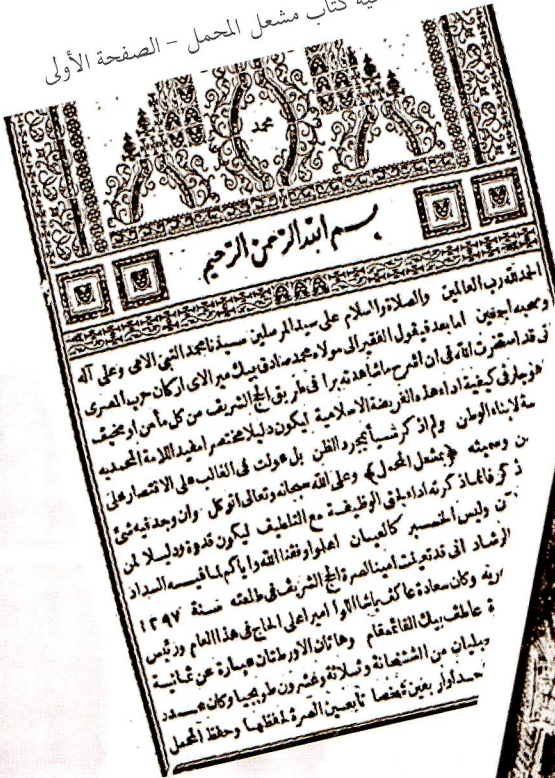 كتاب مشعل المحمل - الصفحة الأولى
محمد
بسم الله الرحمن الرحيم
الحمد لله رب العالمين والصلاة والسلام على سيد المرسلين سيدنا محمد النبي الامي وعلى آله
وصحبه اجمعين اما بعد فيقول الفقير الى مولاه محمد صادق بيك ميرالاى اركان حرب المصرى
قد استخرت الله فى ان اشرح ماشاهدته برا فى طريق الحج الشريف من كل مأمن او مخيف
هو جار فى كيفية اداء هذه الفريضة الاسلامية ليكون دليلا مختصرا مفيدا للامة المحمديه
لابناء الوطن ولم اذكر شيأ بمجرد الظن بل عولت فى الغالب على الاقتصار على
وسميته ﴿بمشعل المحمل﴾ وعلى الله سبحانه وتعالى اتوكل وان وجد فيه شئ
ذكر فانما ذكرته اداء لحق الوظيفة مع التلطيف ليكون قدوة ودليلا لمن
وليس الخبر كالعيان اعلموا وفقنا الله واياكم لما فيه السداد
الرشاد انى قد تعينت امينا لصرة الحج الشريف فى طلعته سنة ١٢٩٧
وكان سعادة عاكف باشا اللوا اميرا على الحاج فى هذا العام ورئيس
عاطف بيك القائمقام وهاتان الاورطتان عبارة عن ثمانية
من الششخانة وثلاثة وعشرون طوبجيا وكان
باربعين شخصا تابعين الصرة لحفظها وحفظ المحمل